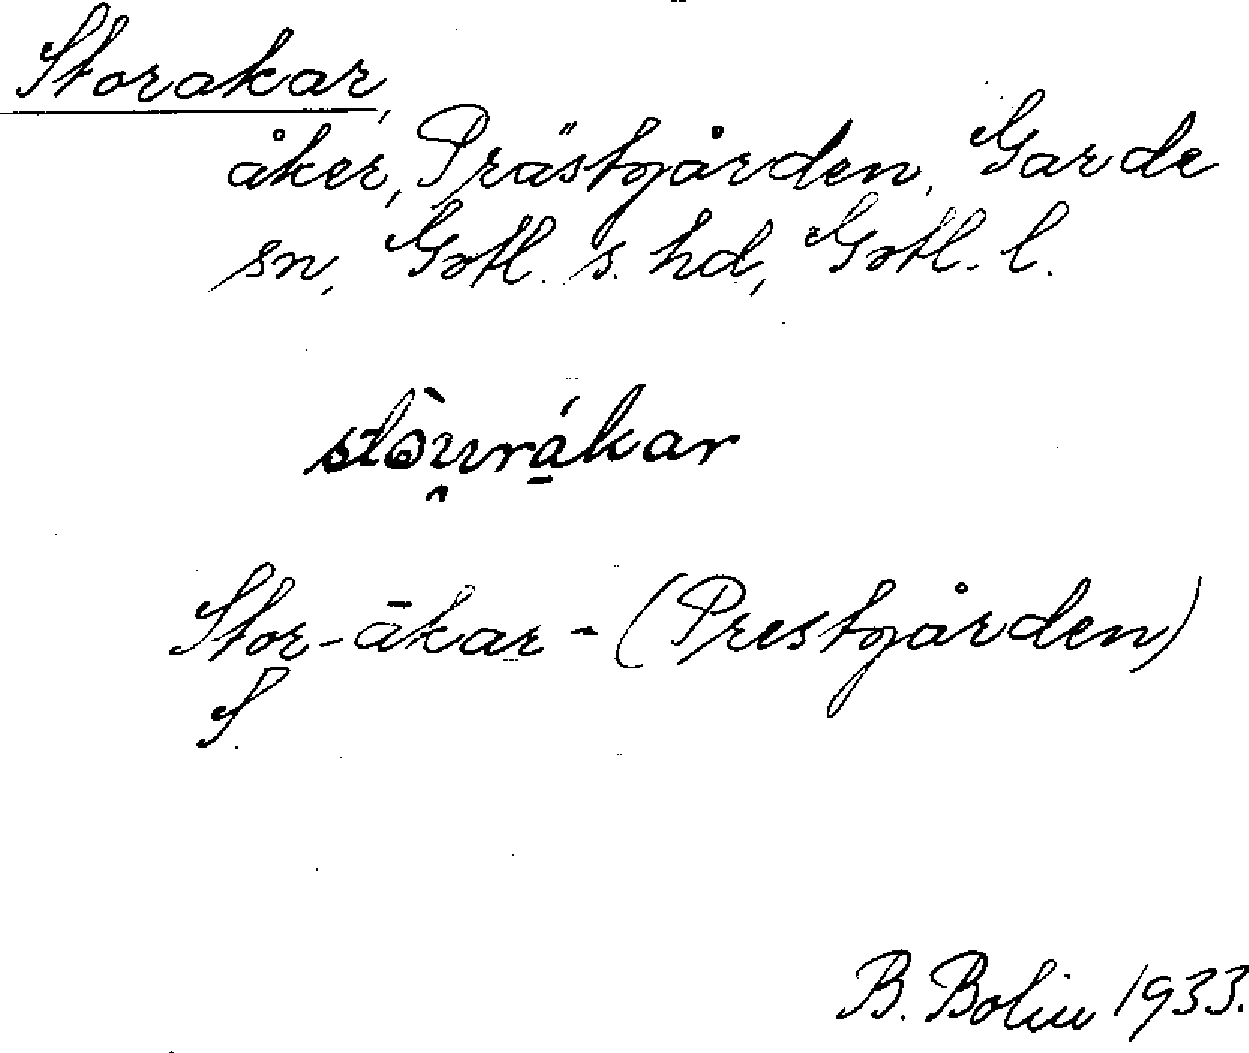 Storakar,
åker, Prästgården, Garde
sn, Gotl. s. hd, Gotl. l.
stòu̯rá̱kar
Stor-ākar - (Prestgården)
S.
B. Bolin 1933.